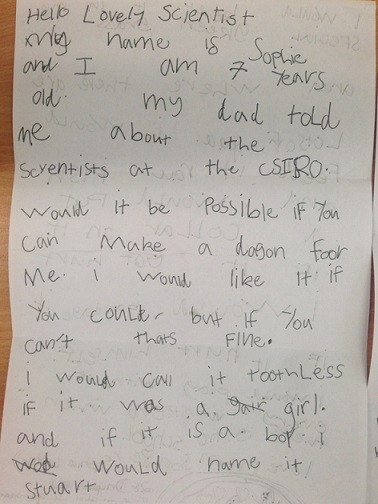 Hello Lovely Scientist
my name is Sophie
and I am 7 Years
old. my dad told
me about the
Screntists at the CSIRO.
Would it be Possible if You
can Make a dagon foor
Me. i would like it if
You could but if You
can't thats Fine.
i would call it toothless
if it was a girl.
and if it is a boy i
would name it
Stuart